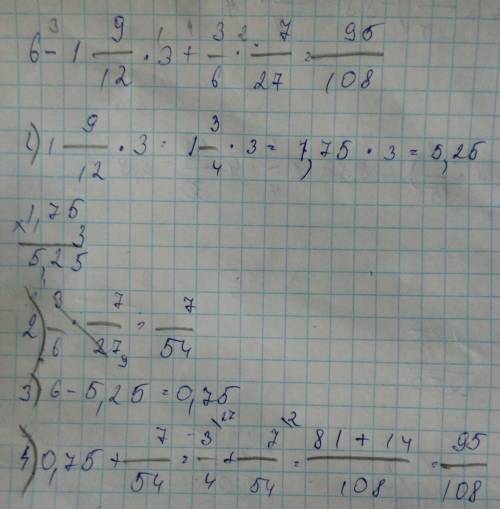 6 - 1 9/12 · 3 + 3/6 · 7/27 = 95/108
3 1 4 2
1) 1 9/12 · 3 = 1 3/4 · 3 = 1,75 · 3 = 5,25
1,75
× 3
5,25
2) 3/6 · 7/27 = 7/54
9
3) 6 - 5,25 = 0,75
4) 0,75 + 7/54 = 3/4 \27 + 7/54 \2 = 81 + 14/108 = 95/108